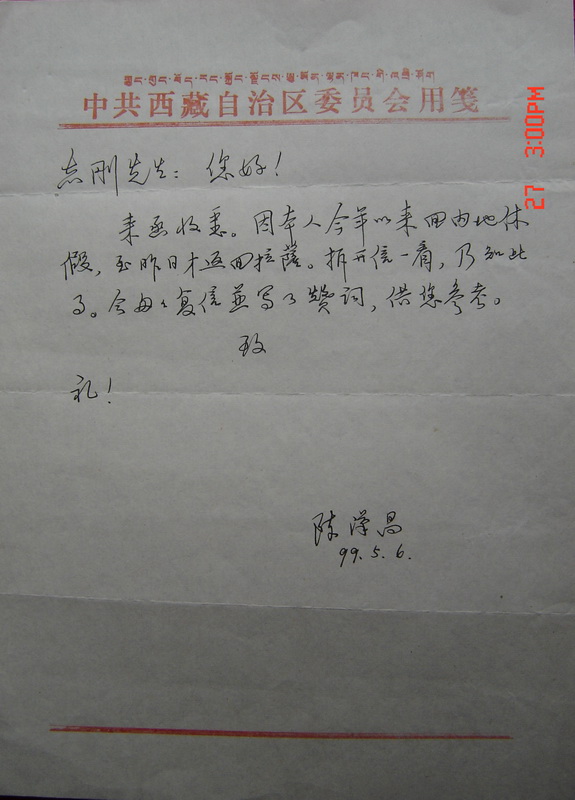 中共西藏自治区委员会用笺
27 3:00PM
志刚先生：您好！
来函收悉。因本人今年以来回内地休
假，至昨日才返回拉萨。拆开信一看，乃知此
了。今匆匆复信並写了赞词，供您参考。
致
礼！
陈汉昌
99.5.6.